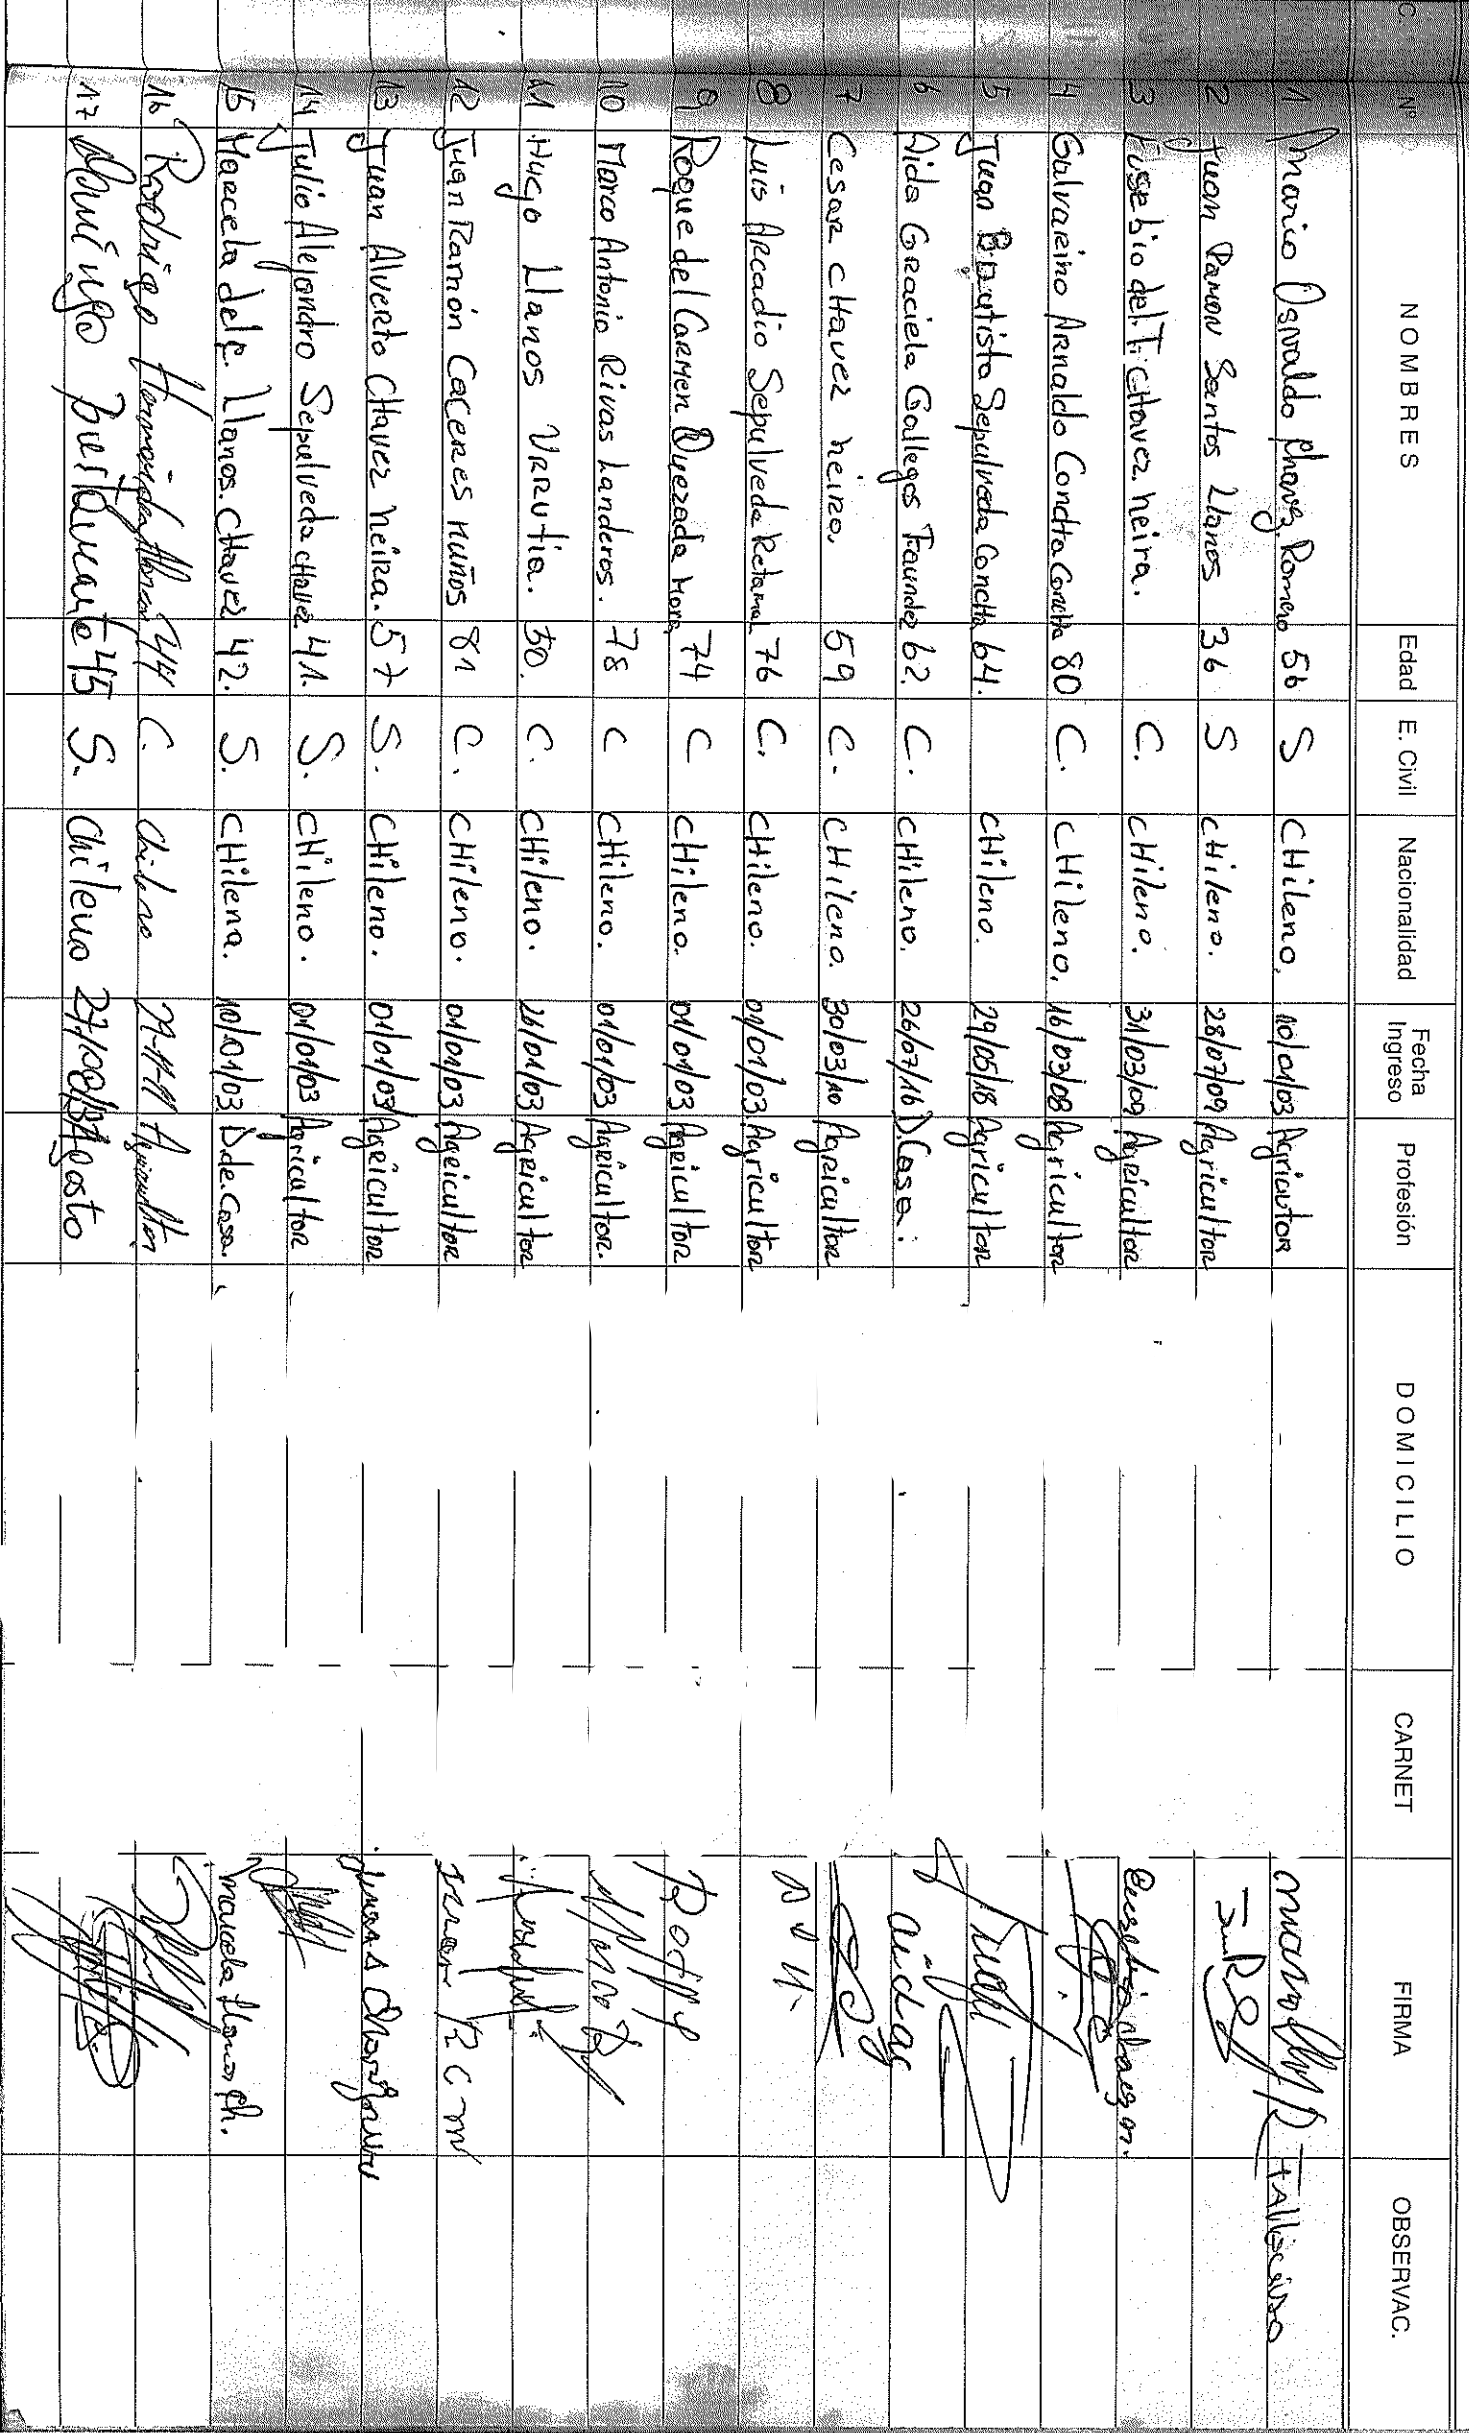 C. Nº NOMBRES Edad E. Civil Nacionalidad Fecha Ingreso Profesión DOMICILIO CARNET FIRMA OBSERVAC.
1 Mario Osvaldo Chavez Romero 56 S CHileno. 10/01/03 Agricutor FALLECIDO
2 Juan Ramon Santos Llanos 36 S CHileno. 28/07/09 Agricultor
3 Eusebio del T. CHavez. neira. C. CHileno. 31/03/09 Agricultor
4 Galvarino Arnaldo Concha Concha 80 C. CHileno. 16/03/08 Agricultor
5 Juan Bautista Sepulveda Concha 64. CHileno. 29/05/18 Agricultor
6 Aida Graciela Gallegos Faundez 62. C. CHileno. 26/07/16 D. Casa. aida c
7 Cesar CHavez neira. 59 C. CHileno. 30/03/10 Agricultor
8 Luis Arcadio Sepulveda Retamal 76 C. CHileno. 01/01/03 Agricultor
9 Roque del Carmen Quezada Mora 74 C CHileno. 01/01/03 Agricultor
10 Marco Antonio Rivas Landeros. 78 C CHileno. 01/01/03 Agricultor.
11 Hugo Llanos Urrutia. 50. C. CHileno. 26/01/03 Agricultor
12 Juan Ramón Caceres muños 81 C. CHileno. 01/01/03 Agricultor Juan R C m
13 Juan Alverto CHavez neira. 57 S. CHileno. 01/01/03 Agricultor
14 Julio Alejandro Sepulveda cHavez 41. S. CHileno. 01/01/03 Agricultor
15 Marcela del c. Llanos. CHavez 42. S. CHilena. 10/01/03 D. de. Casa. marcela Llanos ch.
16 Rodrigo Hermosidez 44 C. Chileno Agricultor
17 Domingo Bustamante 45 S. Chileno Agosto